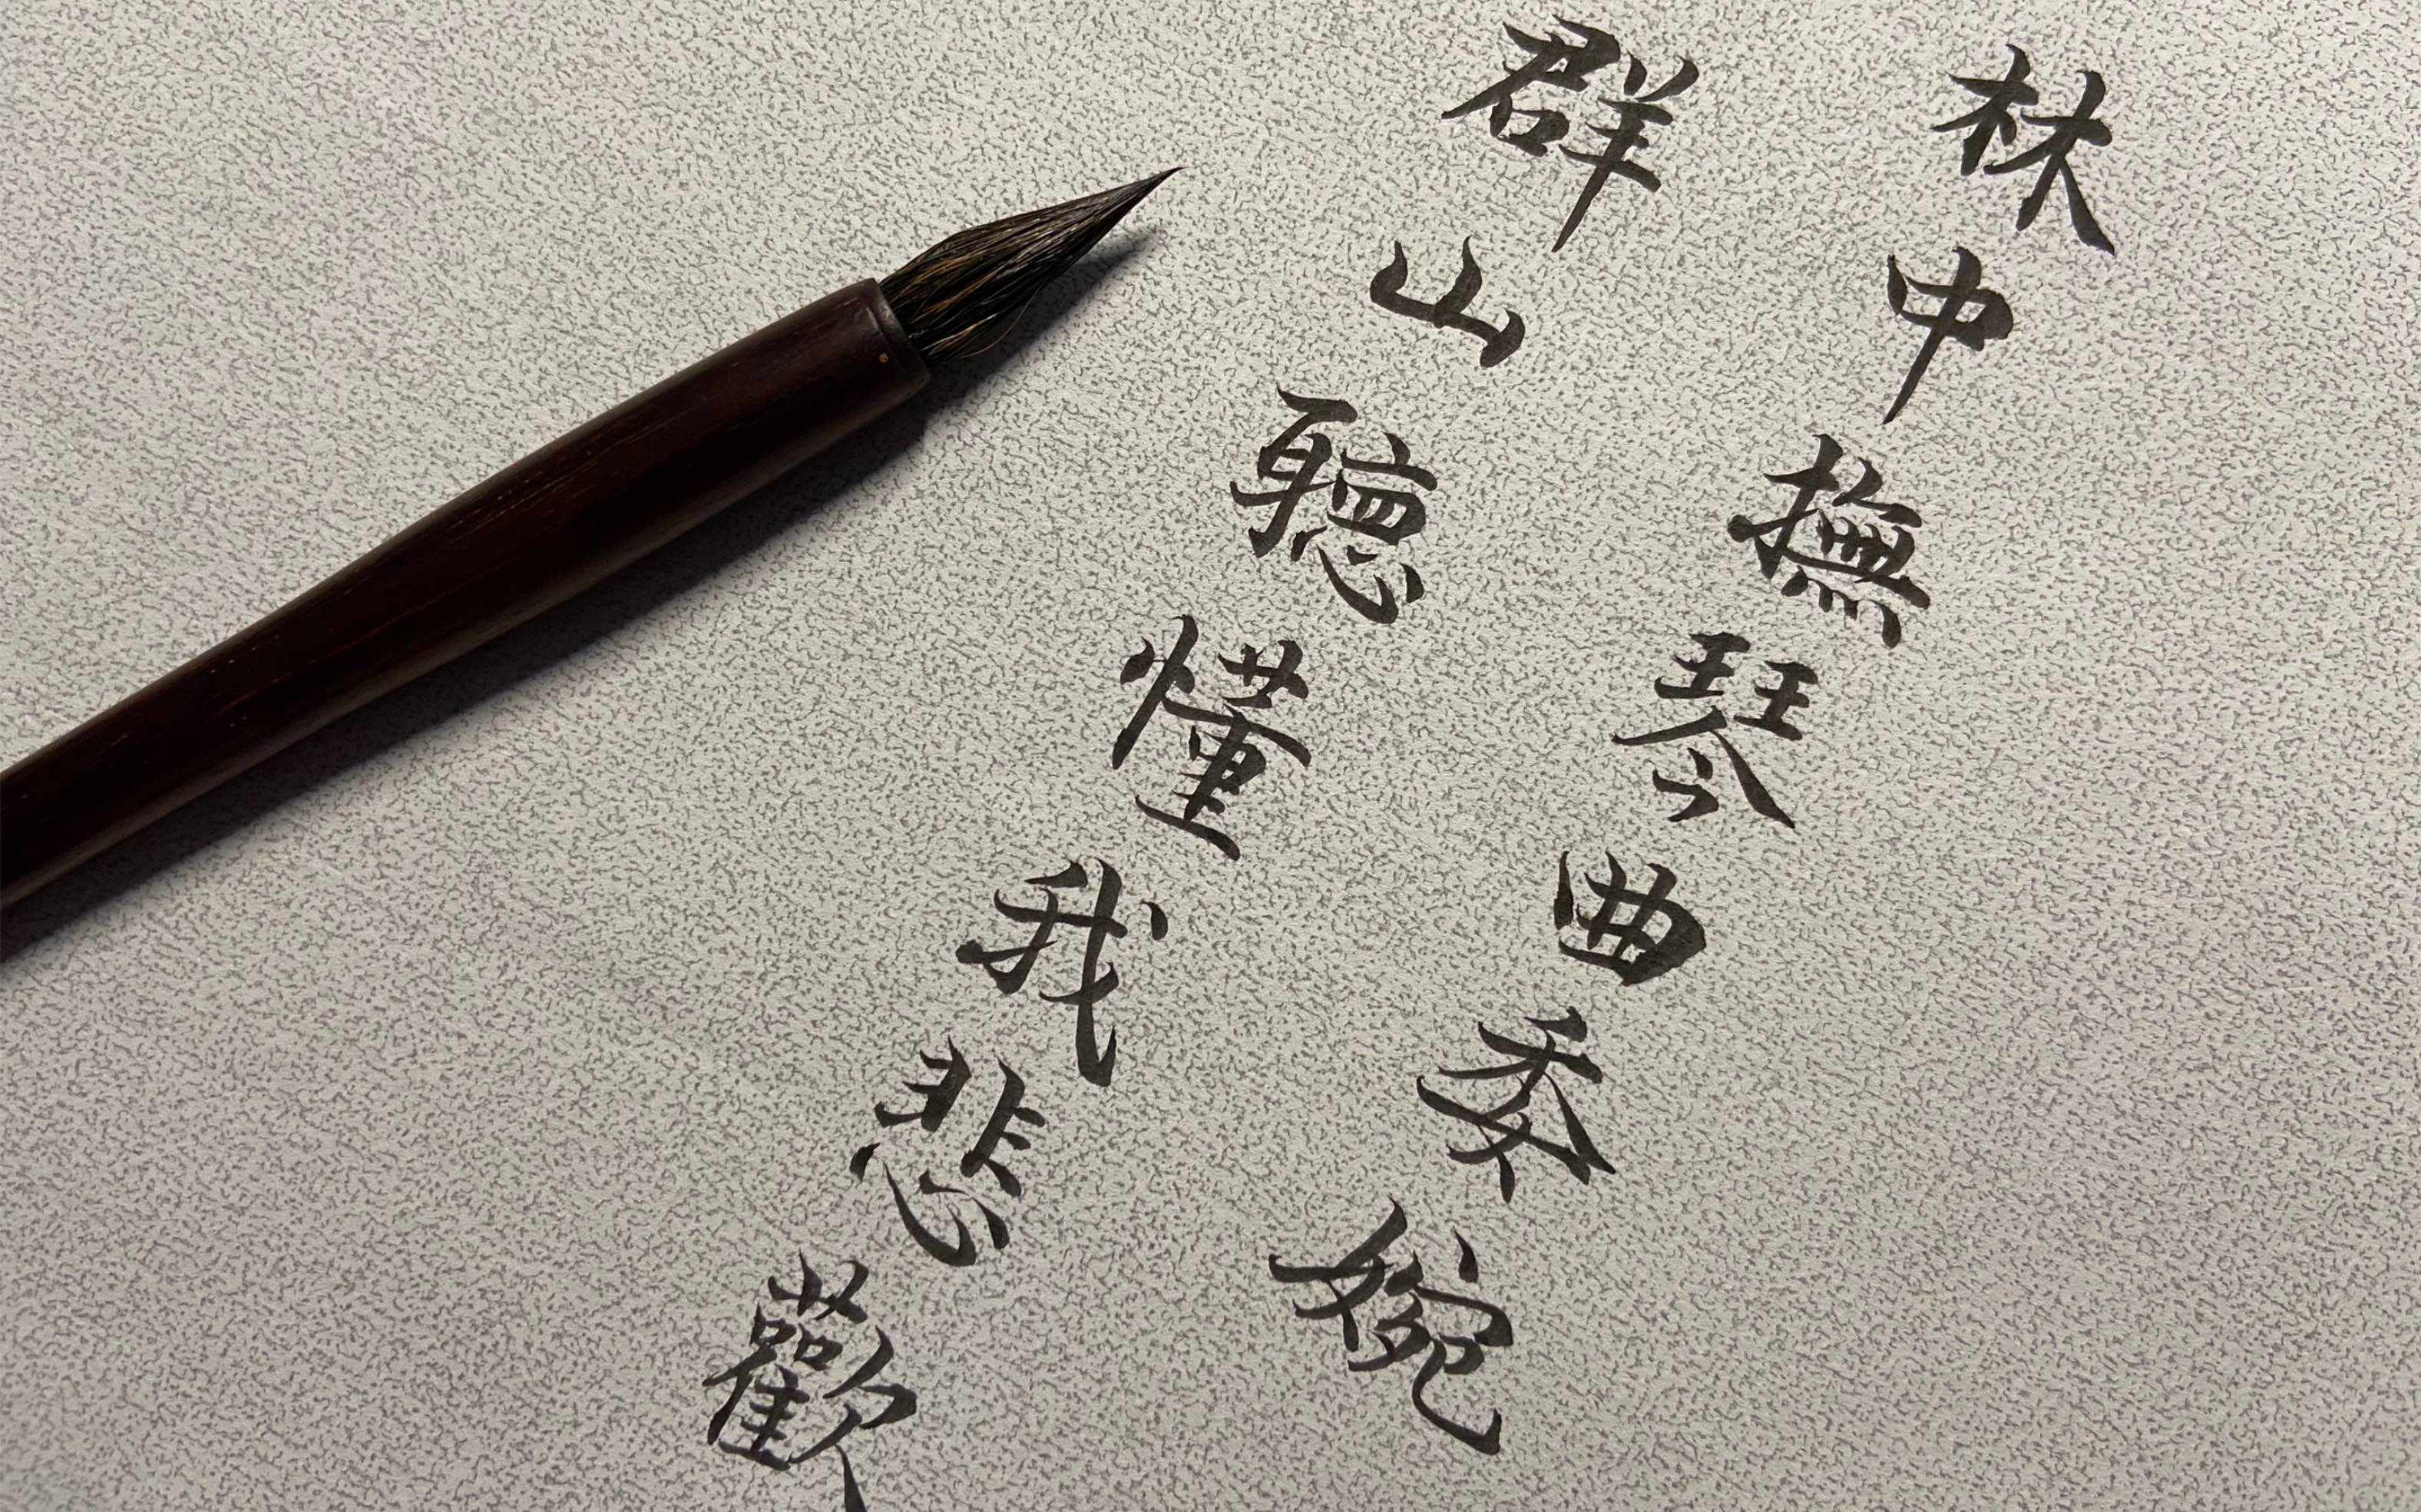 林中撫琴曲委婉
群山聽懂我悲歡